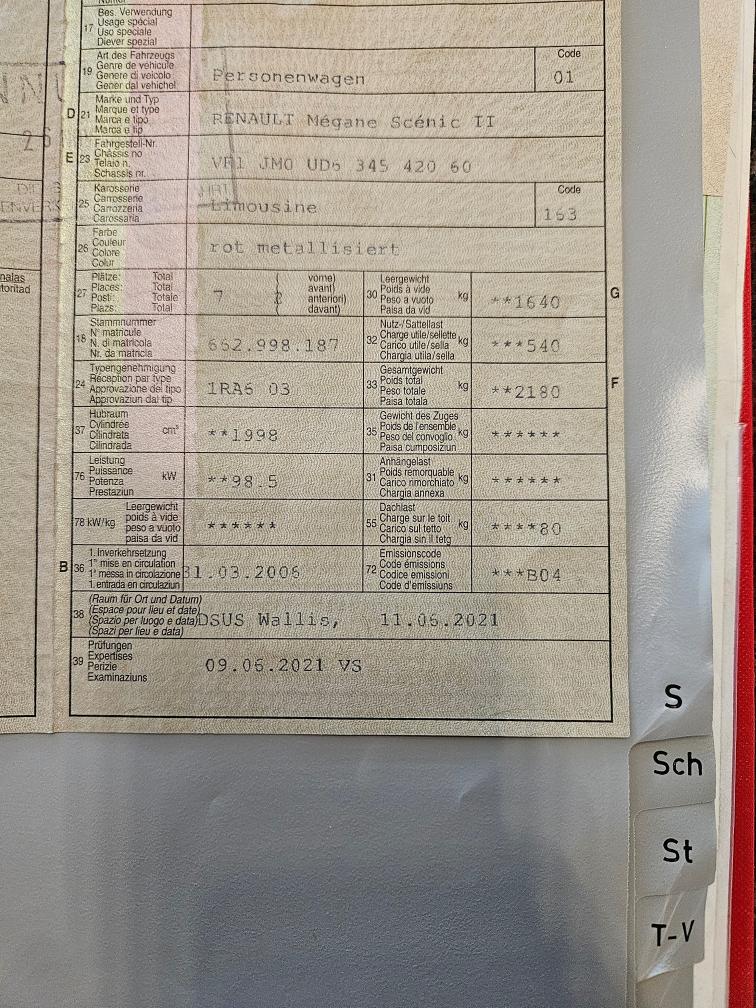 17 Bes. Verwendung
Usage spécial
Uso speciale
Diever spezial
19 Art des Fahrzeugs
Genre de véhicule
Genere di veicolo
Gener dal vehichel
Personenwagen
Code
01
D 21 Marke und Typ
Marque et type
Marca e tipo
Marca e tip
RENAULT Mégane Scénic II
E 23 Fahrgestell-Nr.
Châssis no
Telaio n.
Schassis nr.
VF1 JM0 UD6 345 420 60
25 Karosserie
Carrosserie
Carrozzeria
Carossaria
Limousine
Code
163
26 Farbe
Couleur
Colore
Colur
rot metallisiert
27 Plätze: Total
Places: Total
Posti: Totale
Plazs: Total
7
vorne)
avant)
anteriori)
davant)
30 Leergewicht
Poids à vide
Peso a vuoto
Paisa da vid
kg
**1640
G
18 Stammnummer
N° matricule
N. di matricola
Nr. da matricla
662.998.187
32 Nutz-/Sattellast
Charge utile/sellette
Carico utile/sella
Chargia utila/sella
kg
***540
24 Typengenehmigung
Réception par type
Approvazione del tipo
Approvaziun dal tip
1RA6 03
33 Gesamtgewicht
Poids total
Peso totale
Paisa totala
kg
**2180
F
37 Hubraum
Cylindrée
Cilindrata
Cilindrada
cm³
**1998
35 Gewicht des Zuges
Poids de l'ensemble
Peso del convoglio
Paisa cumposiziun
kg
******
76 Leistung
Puissance
Potenza
Prestaziun
kW
**98.5
31 Anhängelast
Poids remorquable
Carico rimorchiato
Chargia annexa
kg
******
78 kW/kg
Leergewicht
poids à vide
peso a vuoto
paisa da vid
******
55 Dachlast
Charge sur le toit
Carico sul tetto
Chargia sin il tetg
kg
****80
B 36 1. Inverkehrsetzung
1re mise en circulation
1a messa in circolazione
1. entrada en circulaziun
31.03.2006
72 Emissionscode
Code émissions
Codice emissioni
Code d'emissiuns
***B04
38 (Raum für Ort und Datum)
(Espace pour lieu et date)
(Spazio per luogo e data)
(Spazi per lieu e data)
DSUS Wallis, 11.06.2021
39 Prüfungen
Expertises
Perizie
Examinaziuns
09.06.2021 VS
S
Sch
St
T-V